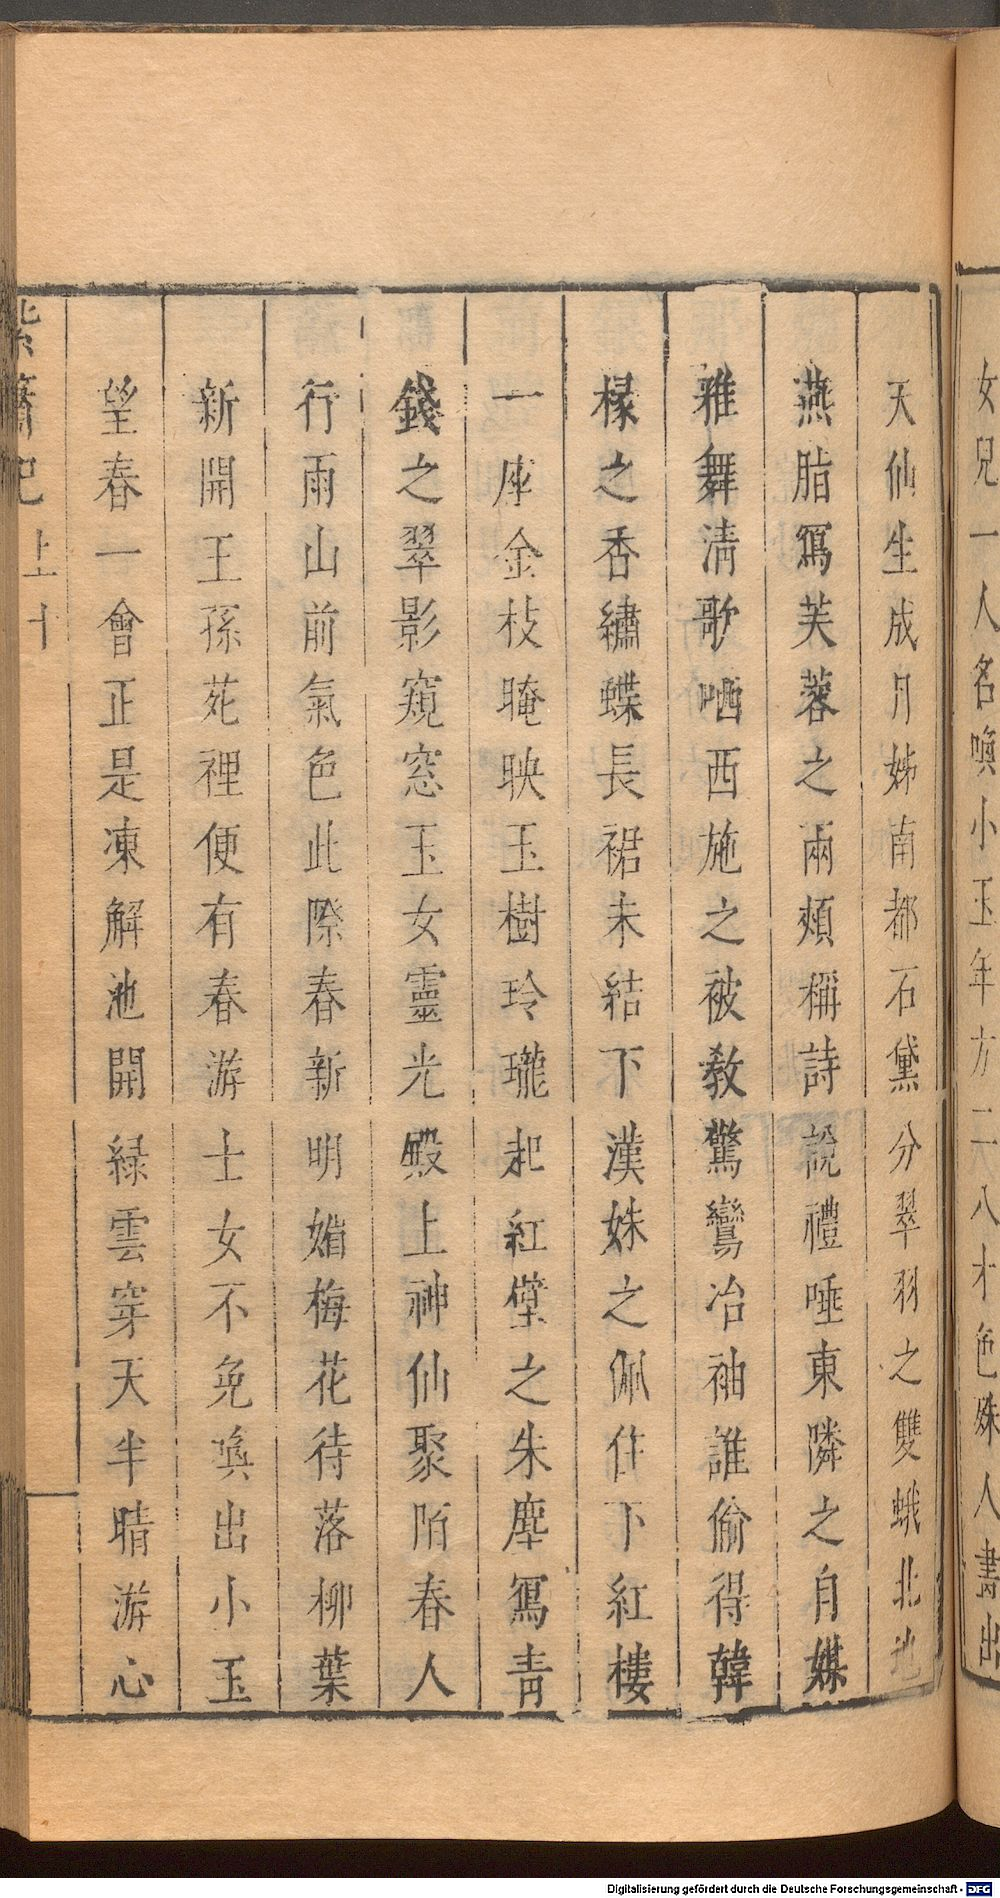 女兒一人名喚小玉年方二八才色殊人畵出
天仙生成月姊南都石黛分翠羽之雙蛾北地
燕脂冩芙蓉之兩頰稱詩說禮唾東隣之自媒
雅舞清歌哂西施之被教驚鸞冶袖誰偷得韓
椽之香繡蝶長裙未結下漢姝之佩住下紅樓
一座金枝晻映玉樹玲瓏起紅壁之朱塵冩青
錢之翠影窺窓玉女靈光殿上神仙聚陌春人
行雨山前氣色此際春新明媚梅花待落柳葉
新開王孫苑裡便有春游士女不免喚出小玉
望春一會正是凍解池開綠雲穿天半晴游心
紫簫記 上 十
Digitalisierung gefördert durch die Deutsche Forschungsgemeinschaft - DFG